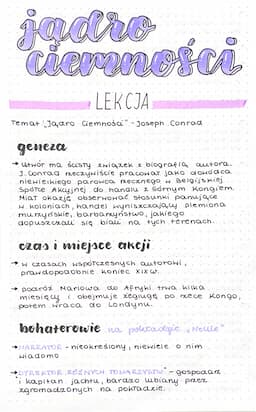 jądro
ciemności
LEKCJA
Temat: "Jądro Ciemności" - Joseph Conrad
geneza
→ Utwór ma ścisły związek z biografią autora.
J. Conrad rzeczywiście pracował jako dowódca
niewielkiego parowca rzecznego w Belgijskiej
Spółce Akcyjnej do handlu z Górnym Kongiem.
Miał okazję obserwować stosunki panujące
w koloniach, handel wyniszczający plemiona
murzyńskie, barbarzyństwo, jakiego
dopuszczali się biali na tych terenach.
czas i miejsce akcji
→ w czasach współczesnych autorowi,
prawdopodobnie koniec XIX w.
→ podróż Marlowa do Afryki trwa kilka
miesięcy i obejmuje żeglugę po rzece Kongo,
potem wraca do Londynu.
bohaterowie na pokładzie „Nellie”
→ NARRATOR - nieokreślony, niewiele o nim
wiadomo
→ DYREKTOR RÓŻNYCH TOWARZYSTW - gospodarz
i kapitan jachtu, bardzo lubiany przez
zgromadzonych na pokładzie.